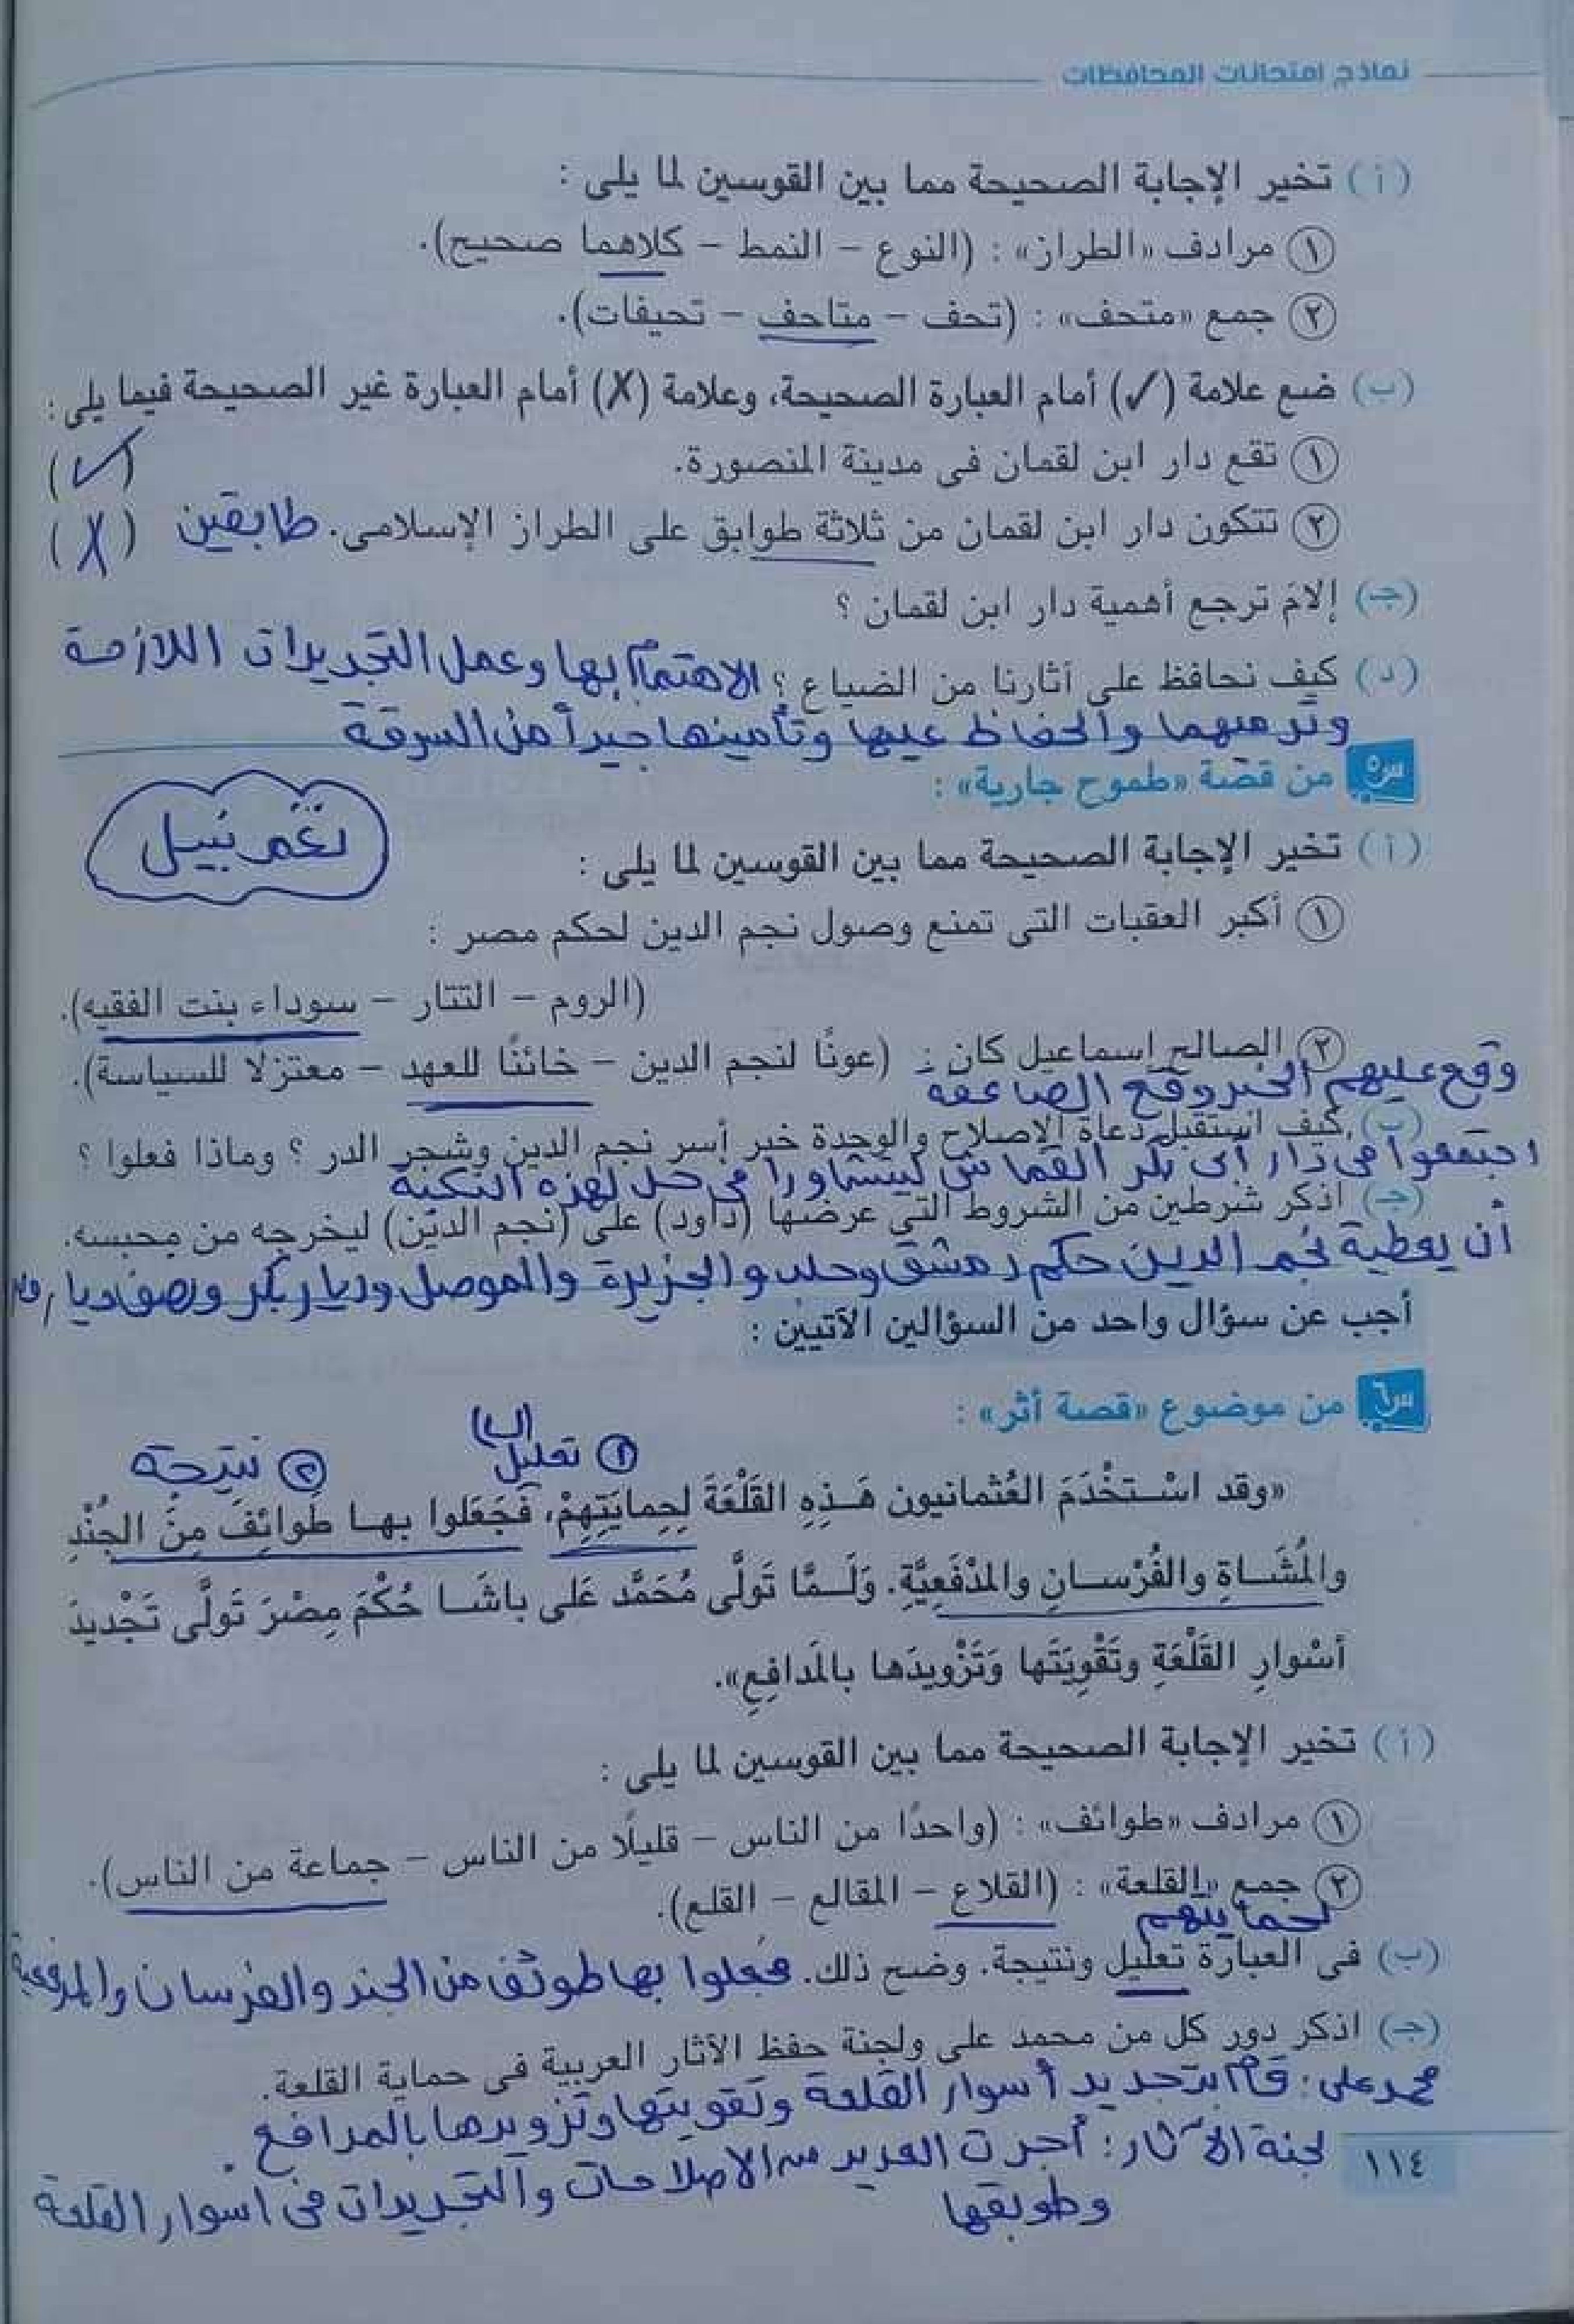 نماذج امتحانات المحافظات
(أ) تخير الإجابة الصحيحة مما بين القوسين لما يلى :
١ مرادف «الطراز» : (النوع – النمط – كلاهما صحيح).
٢ جمع «متحف» : (تحف – متاحف – تحيفات).
(ب) ضع علامة (✓) أمام العبارة الصحيحة، وعلامة (✗) أمام العبارة غير الصحيحة فيما يلى :
١ تقع دار ابن لقمان فى مدينة المنصورة. (✓)
٢ تتكون دار ابن لقمان من ثلاثة طوابق على الطراز الإسلامى. طابقين (✗)
(جـ) إلامَ ترجع أهمية دار ابن لقمان ؟
(د) كيف نحافظ على أثارنا من الضياع ؟ الاهتمام بها وعمل التجديدات اللازمة
وترميهما والحفاظ عيها وتأمينها جيداً من السرقة
س٥ من قصة «طموح جارية» :
نغم نبيل
(أ) تخير الإجابة الصحيحة مما بين القوسين لما يلى :
١ أكبر العقبات التى تمنع وصول نجم الدين لحكم مصر :
(الروم – التتار – سوداء بنت الفقيه).
٢ الصالح إسماعيل كان : (عونًا لنجم الدين – خائنًا للعهد – معتزلًا للسياسة).
وقع عليهم الخبر وقع الصاعقة
(ب) كيف استقبل دعاة الإصلاح والوحدة خبر أسر نجم الدين وشجر الدر ؟ وماذا فعلوا ؟
اجتمعوا فى دار أبى بكر القماش ليتشاورا فى حل لهذه النكبة
(جـ) اذكر شرطين من الشروط التى عرضها (داود) على (نجم الدين) ليخرجه من محبسه.
أن يعطية نجم الدين حكم دمشق وحلب والجزيرة والموصل وديار بكر ونصف ديار
أجب عن سؤال واحد من السؤالين الآتيين :
س٦ من موضوع «قصة أثر» :
(ب)
١ تعليل ٢ نتيجة
«وقد اسْتخْدَمَ العُثمانيون هَذِهِ القَلْعَةَ لِحِمايَتِهِمْ، فَجَعَلوا بها طَوائِفَ مِنَ الجُنْدِ
والمُشَاةِ والفُرْسانِ والمدْفَعِيَّةِ. وَلَمَّا تَولَّى مُحَمَّد عَلى باشَا حُكْمَ مِصْرَ تَولَّى تَجْديدَ
أسْوارِ القَلْعَةِ وتَقْوِيَتَها وَتَزْويدَها بالمَدافِعِ».
(أ) تخير الإجابة الصحيحة مما بين القوسين لما يلى :
١ مرادف «طوائف» : (واحدًا من الناس – قليلًا من الناس – جماعة من الناس).
٢ جمع «القلعة» : (القلاع – المقالع – القلع).
لحمايتهم
(ب) فى العبارة تعليل ونتيجة. وضح ذلك. فجعلوا بها طوئف من الجند والفرسان والمدفعية
(جـ) اذكر دور كل من محمد على ولجنة حفظ الآثار العربية فى حماية القلعة.
محمد على : قام بتجديد أسوار القلعة وتقويتها وتزويدها بالمدافع .
لجنة الآثار : أجرت العديد من الاصلاحات والتجديدات فى أسوار القلعة
وطوبقها
١١٤